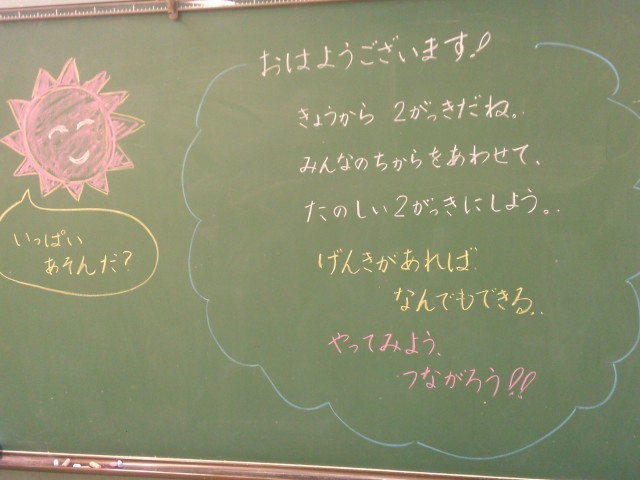 おはようございます!
きょうから 2がっきだね。
みんなのちからをあわせて、
たのしい2がっきにしよう。
げんきがあれば
なんでもできる。
やってみよう、
つながろう!!
いっぱい
あそんだ?